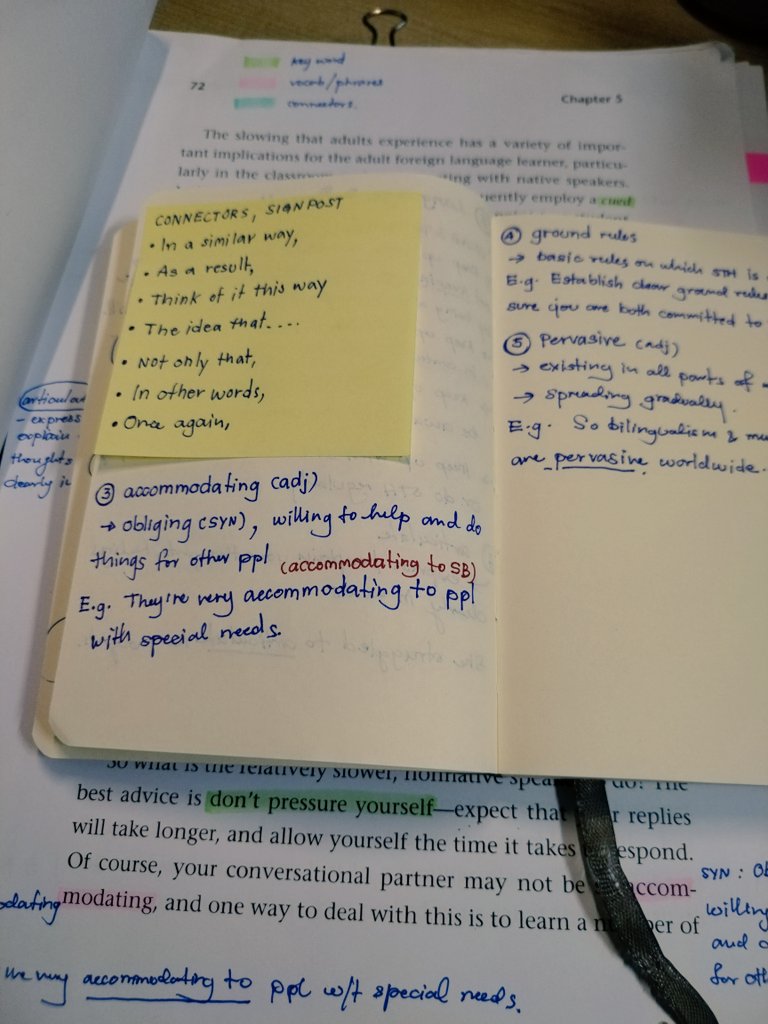 key word
72
vocab/phrases
connectors.
Chapter 5
The slowing that adults experience has a variety of impor-
tant implications for the adult foreign language learner, particu-
larly in the with native speakers.
employ a cued
CONNECTORS, SIGNPOST
• In a similar way,
• As a result,
• Think of it this way
• The idea that....
• Not only that,
• In other words,
• Once again,
③ accommodating (adj)
→ obliging (SYN), willing to help and do
things for other ppl (accommodating to SB)
E.g. They're very accommodating to ppl
with special needs.
④ ground rules
→ basic rules on which STH is
E.g. Establish clear ground rules
sure you are both committed to
⑤ Pervasive (adj)
→ existing in all parts of
→ spreading gradually.
E.g. So bilingualism &
are pervasive worldwide.
- express
explain
thoughts
clearly
So what is the relatively slower, nonnative do? The
best advice is don't pressure yourself—expect that replies
will take longer, and allow yourself the time it takes respond.
Of course, your conversational partner may not be accom-
modating, and one way to deal with this is to learn a number of
SYN :
willing
and
for
very accommodating to ppl w/t special needs.